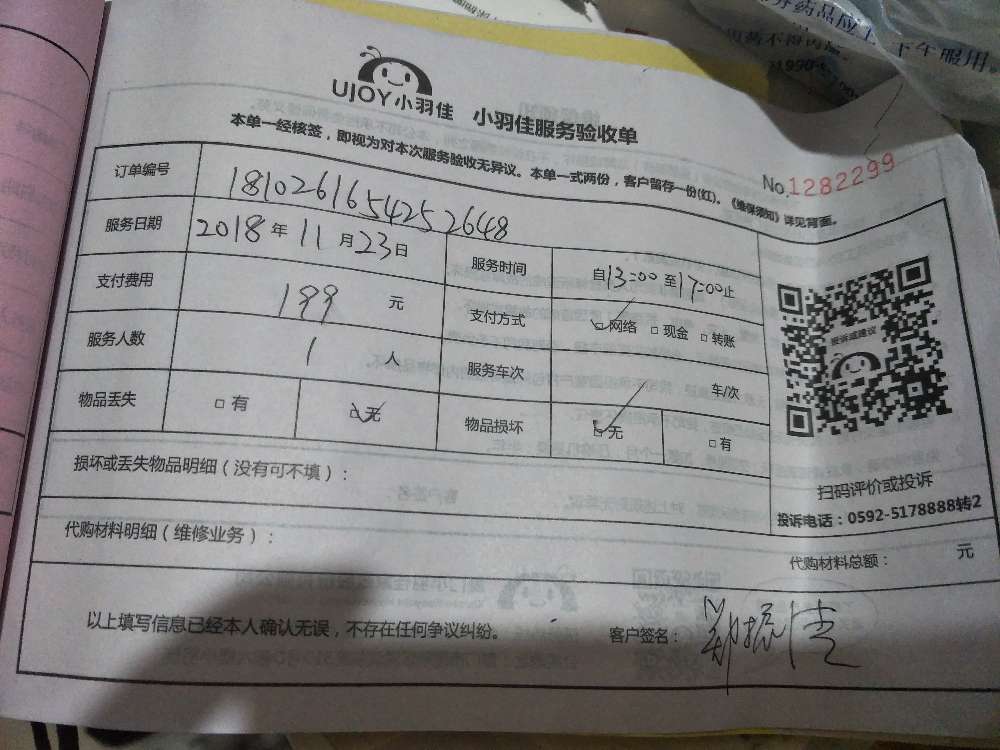 UJOY小羽佳 小羽佳服务验收单
本单一经核签，即视为对本次服务验收无异议。本单一式两份，客户留存一份(红)。《维保须知》详见背面。
No.1282299
订单编号 1810261654252648
服务日期 2018年11月23日 服务时间 自13:00至17:00止
支付费用 199 元 支付方式 ☑网络 □现金 □转账
服务人数 1 人 服务车次 车/次
物品丢失 □有 ☑无 物品损坏 ☑无 □有
投诉或建议
扫码评价或投诉
投诉电话：0592-5178888转2
损坏或丢失物品明细（没有可不填）：
代购材料明细（维修业务）：
代购材料总额： 元
以上填写信息已经本人确认无误，不存在任何争议纠纷。 客户签名：郑振